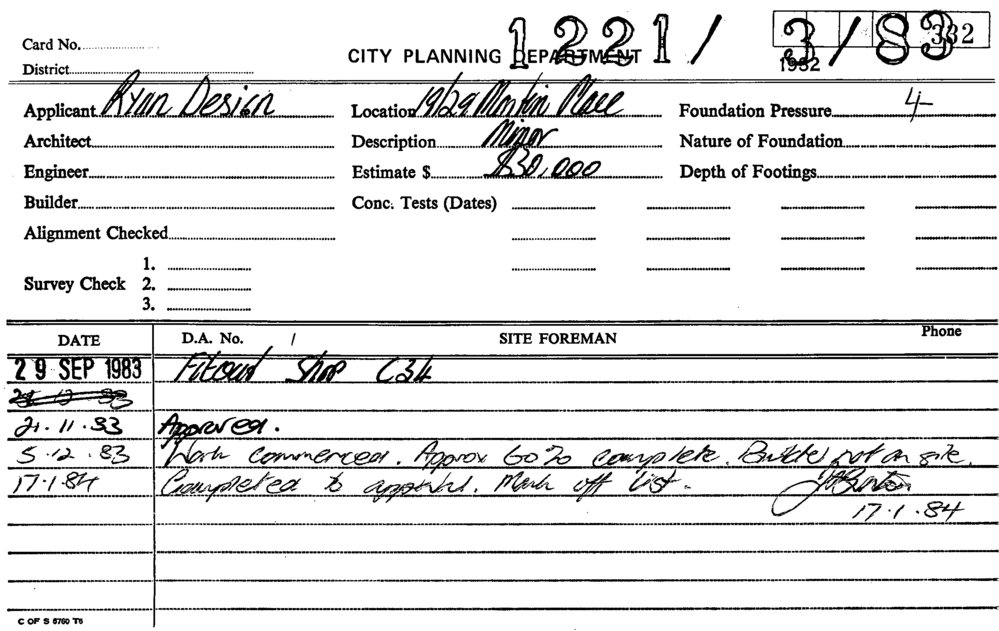 1221/ 3/83
332
Card No.
CITY PLANNING DEPARTMENT
1982
District
Applicant Ryan Design Location 19/29 Martin Place Foundation Pressure 4
Architect Description Minor Nature of Foundation
Engineer Estimate $ $30,000 Depth of Footings
Builder Conc. Tests (Dates)
Alignment Checked
1.
Survey Check 2.
3.
DATE D.A. No. / SITE FOREMAN Phone
29 SEP 1983 Fitout Shop C34
21.11.83 Approved.
5.12.83 Work commenced. Approx 60% complete. Builder not on site.
17.1.84 Completed to approval. Mark off list.
17.1.84
C OF S 6760 T6